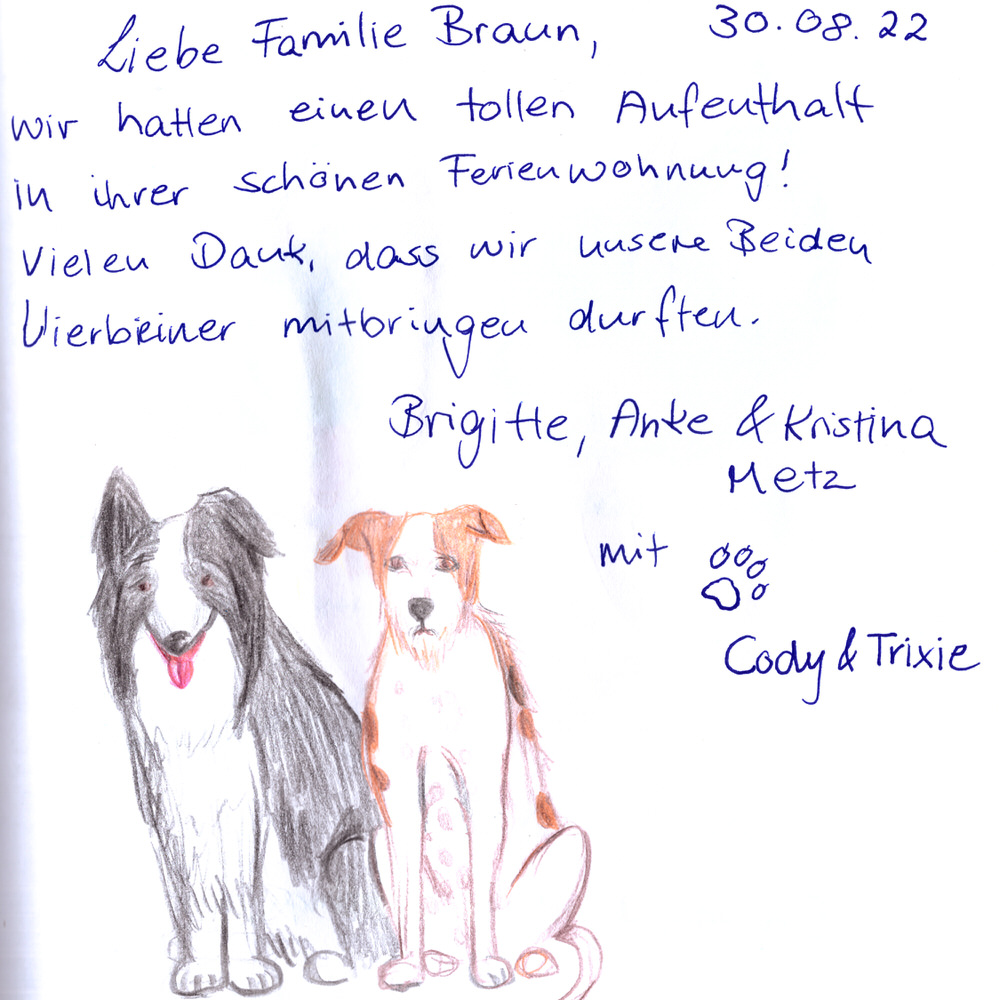 Liebe Familie Braun, 30.08.22
wir hatten einen tollen Aufenthalt
in ihrer schönen Ferienwohnung!
Vielen Dank, dass wir unsere Beiden
Vierbeiner mitbringen durften.
Brigitte, Anke & Kristina
Metz
mit
Cody & Trixie